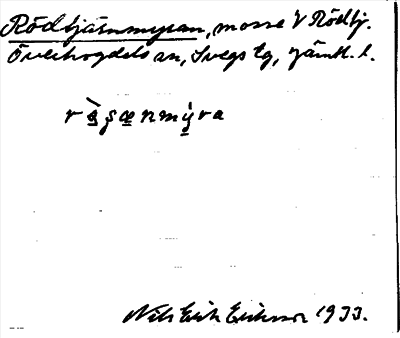 Rödtjärnmyran, mosse V Rödtj.
Överhogdals sn, Svegs tg, Jämtl. l.
Nils Erik Eriksson 1933.